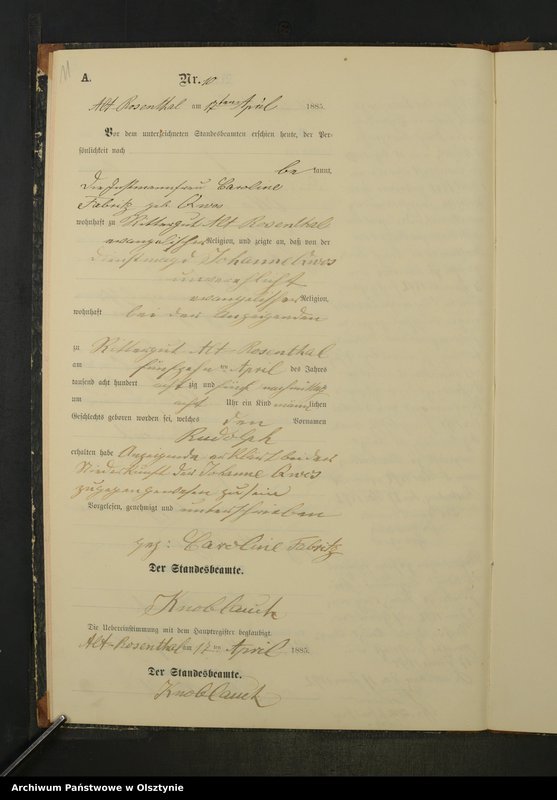 11
A.
Nr. 10
Alt Rosenthal am 17ten April 1885.
Vor dem unterzeichneten Standesbeamten erschien heute, der Per-
sönlichkeit nach
be kannt,
die Instmannfrau Caroline
Fabritz geb.
wohnhaft zu Rittergut Alt Rosenthal
evangelischer Religion, und zeigte an, daß von der
Dienstmagd Johanne
unverehlicht
evangelischer Religion,
wohnhaft bei der Anzeigenden
zu Rittergut Alt-Rosenthal
am fünfzehn ten April des Jahres
tausend acht hundert acht zig und fünf nachmittag
um acht Uhr ein Kind männ lichen
Geschlechts geboren worden sei, welches den Vornamen
Rudolph
erhalten habe Anzeigende erklärt bei der
Niederkunft der Johanne
zugegen gewesen zu sein
Vorgelesen, genehmigt und unterschrieben
gez: Caroline Fabritz
Der Standesbeamte.
Knoblauch
Die Uebereinstimmung mit dem Hauptregister beglaubigt.
Alt-Rosenthal am 17 ten April 1885.
Der Standesbeamte.
Knoblauch
Archiwum Państwowe w Olsztynie